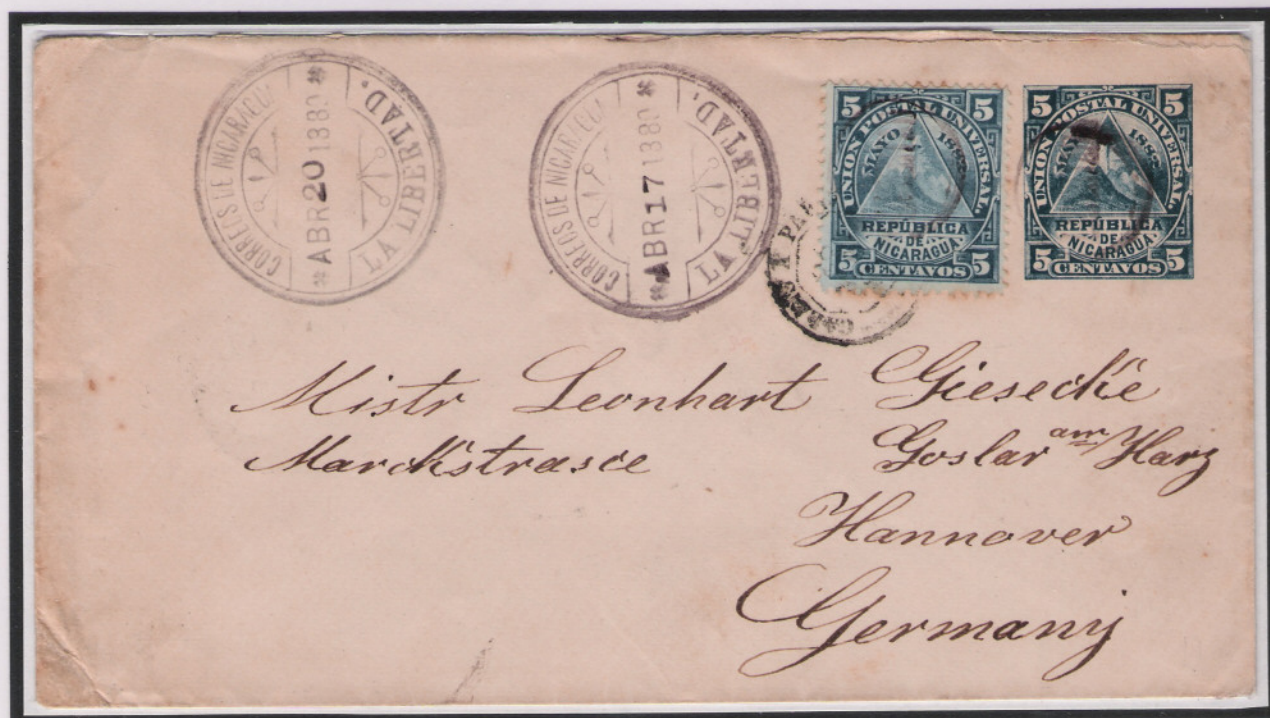 CORREOS DE NICARAGUA
* ABR 20 1889 *
LA LIBERTAD.
CORREOS DE NICARAGUA
* ABR 17 1889 *
LA LIBERTAD.
5 5
UNION POSTAL UNIVERSAL.
MAYO
REPÚBLICA
DE
NICARAGUA
5 CENTAVOS 5
5 5
UNION POSTAL UNIVERSAL.
MAYO 1882
REPÚBLICA
DE
NICARAGUA
5 CENTAVOS 5
Mistr Leonhart Giesecke
Marckstrasce Goslar am Harz
Hannover
Germany